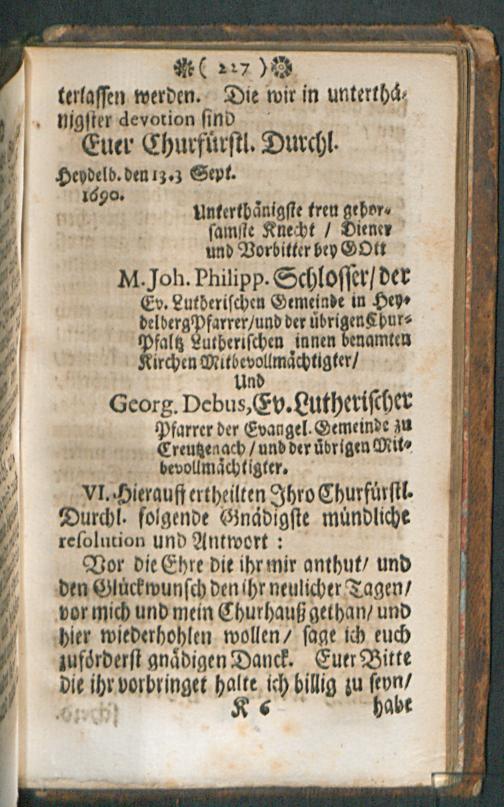 ❋( 227 )❋
terlassen werden. Die wir in unterthä-
nigster devotion sind
Euer Churfürstl. Durchl.
Heydelb. den 13.3 Sept.
1690.
Unterthänigste treu gehor-
samste Knecht / Diener
und Vorbitter bey GOtt
M. Joh. Philipp. Schlosser/ der
Ev. Lutherischen Gemeinde in Hey-
delberg Pfarrer/und der übrigen Chur-
Pfaltz Lutherischen innen benamten
Kirchen Mitbevollmächtigter/
Und
Georg. Debus, Ev. Lutherischer
Pfarrer der Evangel. Gemeinde zu
Creutzenach / und der übrigen Mit-
bevollmächtigter.
VI. Hierauff ertheilten Ihro Churfürstl.
Durchl. folgende Gnädigste mündliche
resolution und Antwort :
Vor die Ehre die ihr mir anthut/ und
den Glückwunsch den ihr neulicher Tagen/
vor mich und mein Churhauß gethan/ und
hier wiederhohlen wollen / sage ich euch
zuförderst gnädigen Danck. Euer Bitte
die ihr vorbringet halte ich billig zu seyn/
K 6 habe